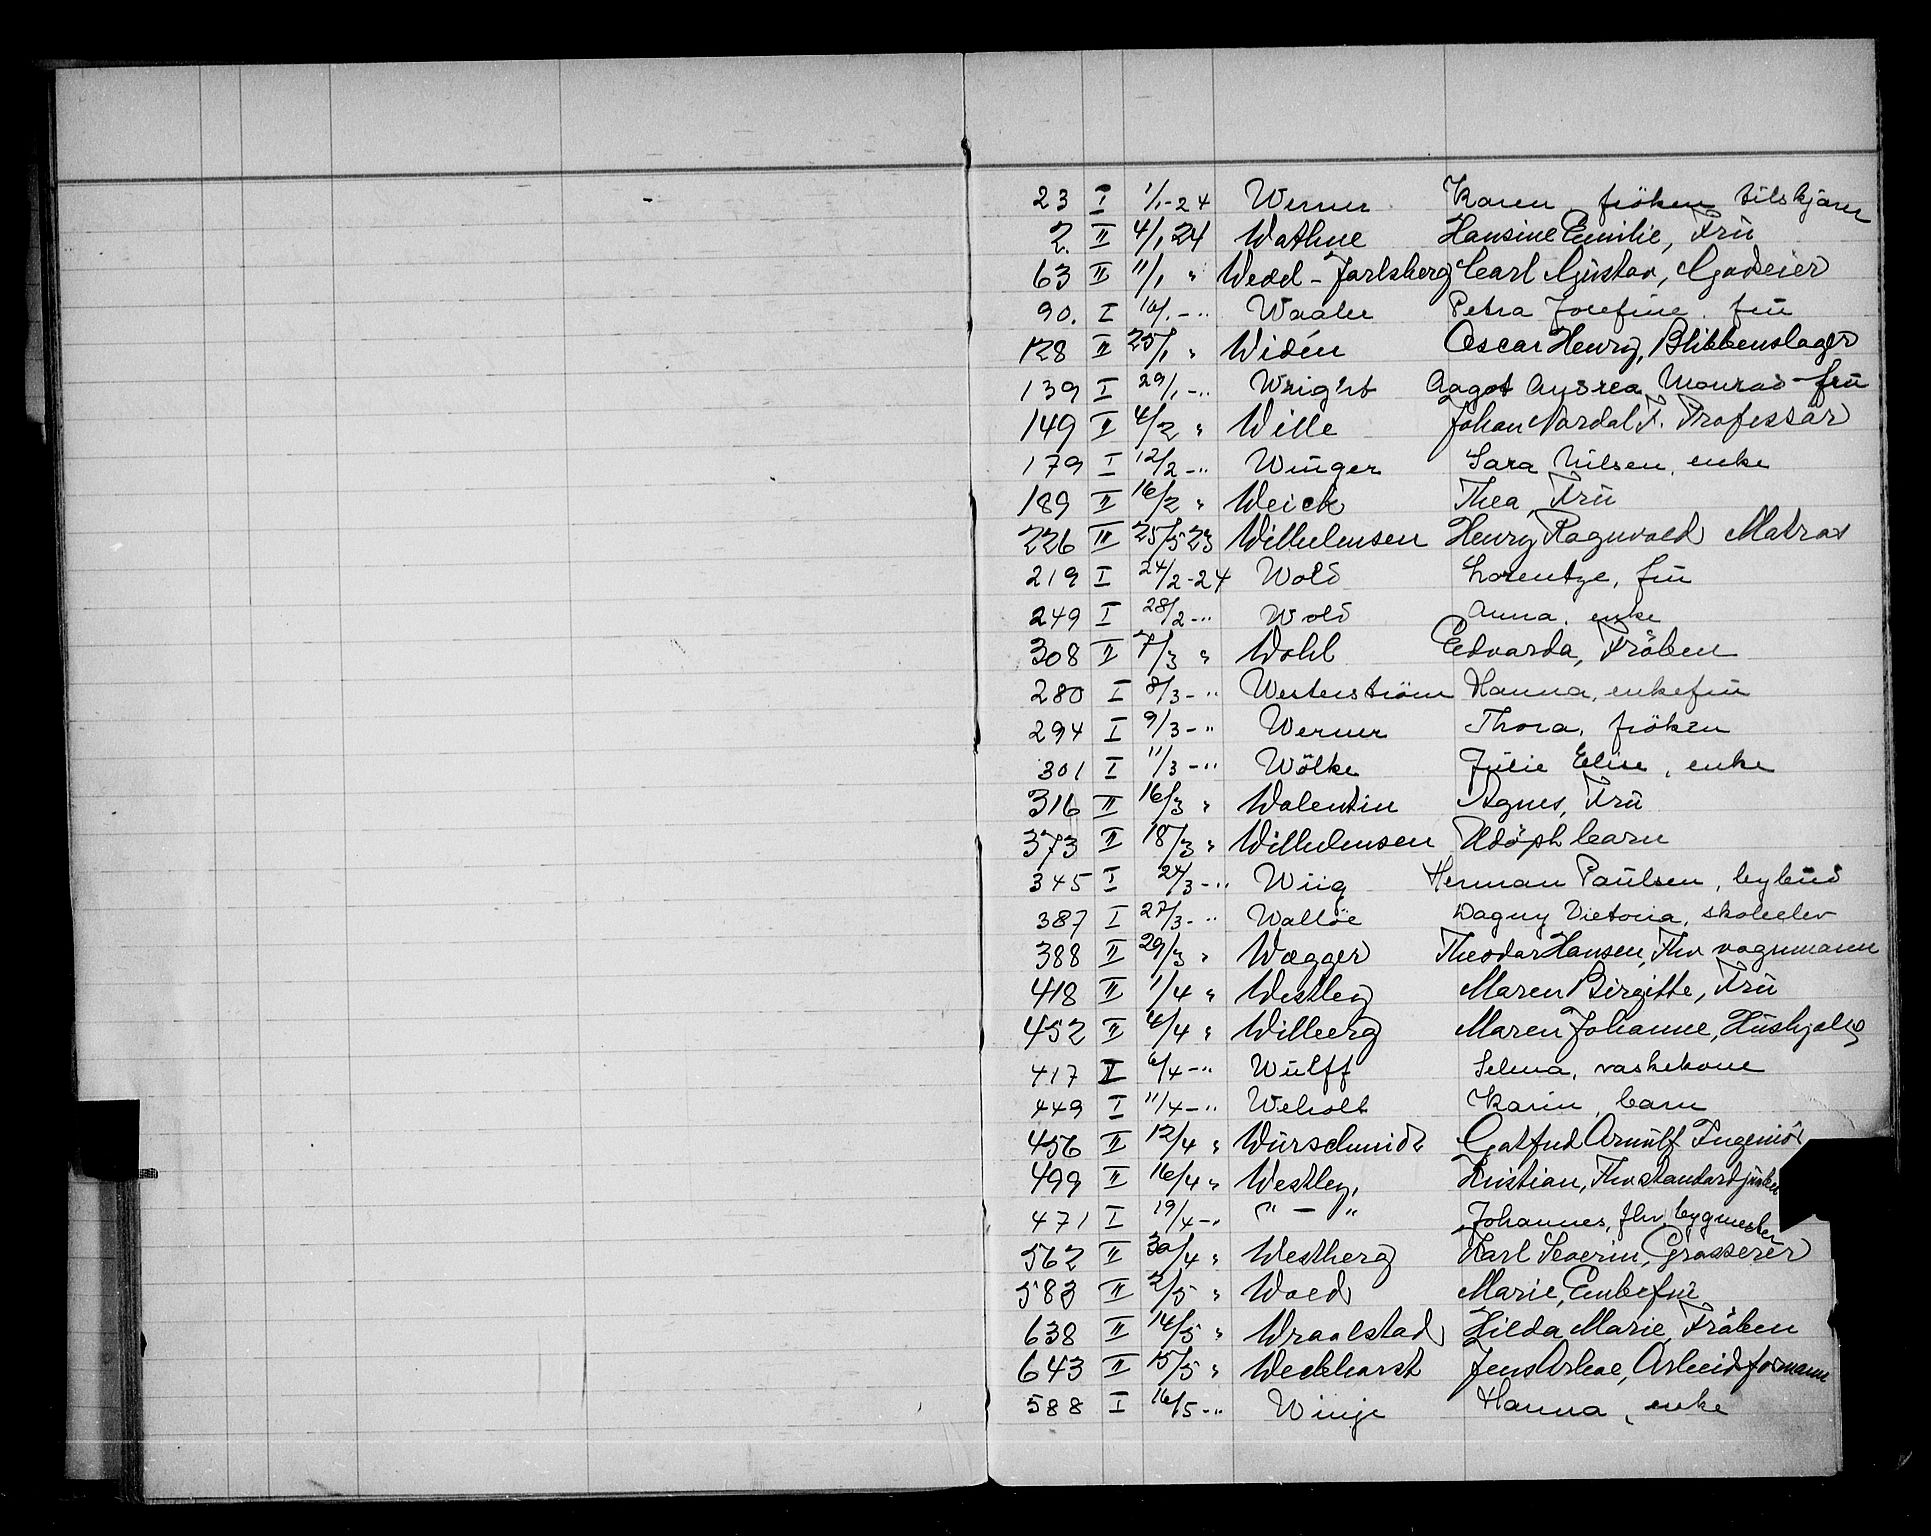 23 I 1/1-24 Werner Karen, fröken tilskjærer
2. II 4/1 24 Wathne Hansine Emilie, Frü
63 II 11/1 " Wedel-Jarlsberg Carl Güstav, Godseier
90. I 10/1-" Waaler Petra Josefine, frü
128 II 25/1 " Widén Oscar Henry, Blikkenslager
139 I 29/1-" Wright Aagot Aydrea Monrad-frü
149 II 4/2 " Wille Johan Nordal F. Professor
179 I 12/2-" Winger Sara Nilsen, enke
189 II 16/2 " Weick Thea, Frü
226 II 25/5 23 Wilhelmsen Henry Ragnvald Matros
219 I 24/2-24 Wold Lorentze, frü
249 I 28/2-" Wold Anna, enke
308 II 7/3 " Wohl Edvarda, Fröken
280 I 8/3-" Westerström Hanna, enkefrü
294 I 9/3-" Werner Thora, fröken
301 I 11/3-" Wölke Jülie Elise, enke
316 II 16/3 " Walentin Agnes, Frü
373 II 18/3 " Wilhelmsen Udöpt barn
345 I 24/3-" Wiig Herman Paülsen, bybüd
387 I 27/3-" Wallöe Dagny Victoria, skoleelev
388 II 29/3 " Wægger Theodor Hansen, Fhv vognmann
418 II 1/4 " Westley Maren Birgitte, Frü
452 II 4/4 " Wilberg Maren Johanne, Hüshjelp
417 I 6/4-" Wülff Selma, vaskekone
449 I 11/4-" Weholt Karin, barn
456 II 12/4 " Würschmidt Gotfred Arnülf Ingeniör
499 II 16/4 " Westley, Kristian, Fhv standardjunker
471 I 19/4-" " - " Johannes, fhv. bygmester
562 II 30/4 " Westberg Karl Severin, Grosserer
583 II 2/5 " Wold Marie, Enkefrü
638 II 14/5 " Wraalstad Hilda Marie, Fröken
643 II 15/5 " Weckhorst Jens Arboe, Arbeidsformann
588 I 16/5-" Winje Hanna, enke